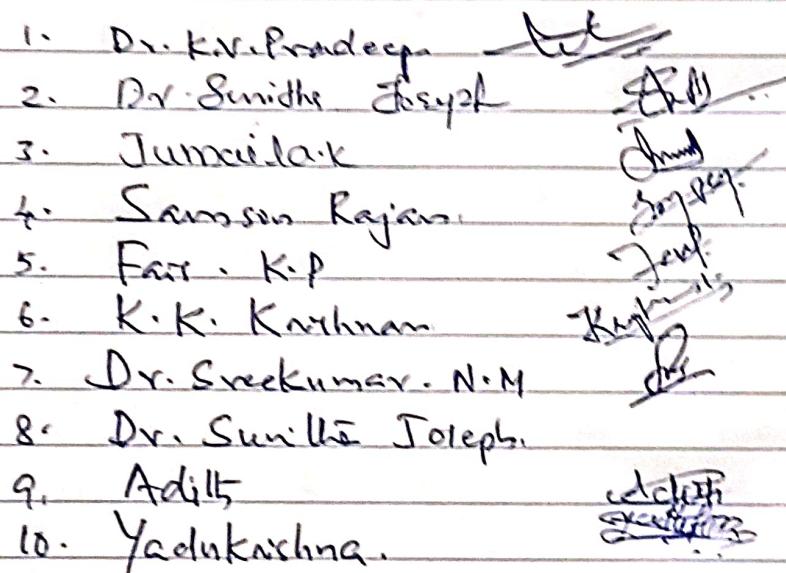 1. Dr. K.V. Pradeep
2. Dr. Sunitha Joseph
3. Jumaila.K
4. Samson Rajan.
5. Faiz. K.P
6. K.K. Krishnan
7. Dr. Sreekumar. N.M
8. Dr. Sunitha Joseph.
9. Adith Adith
10. Yadukrishna.